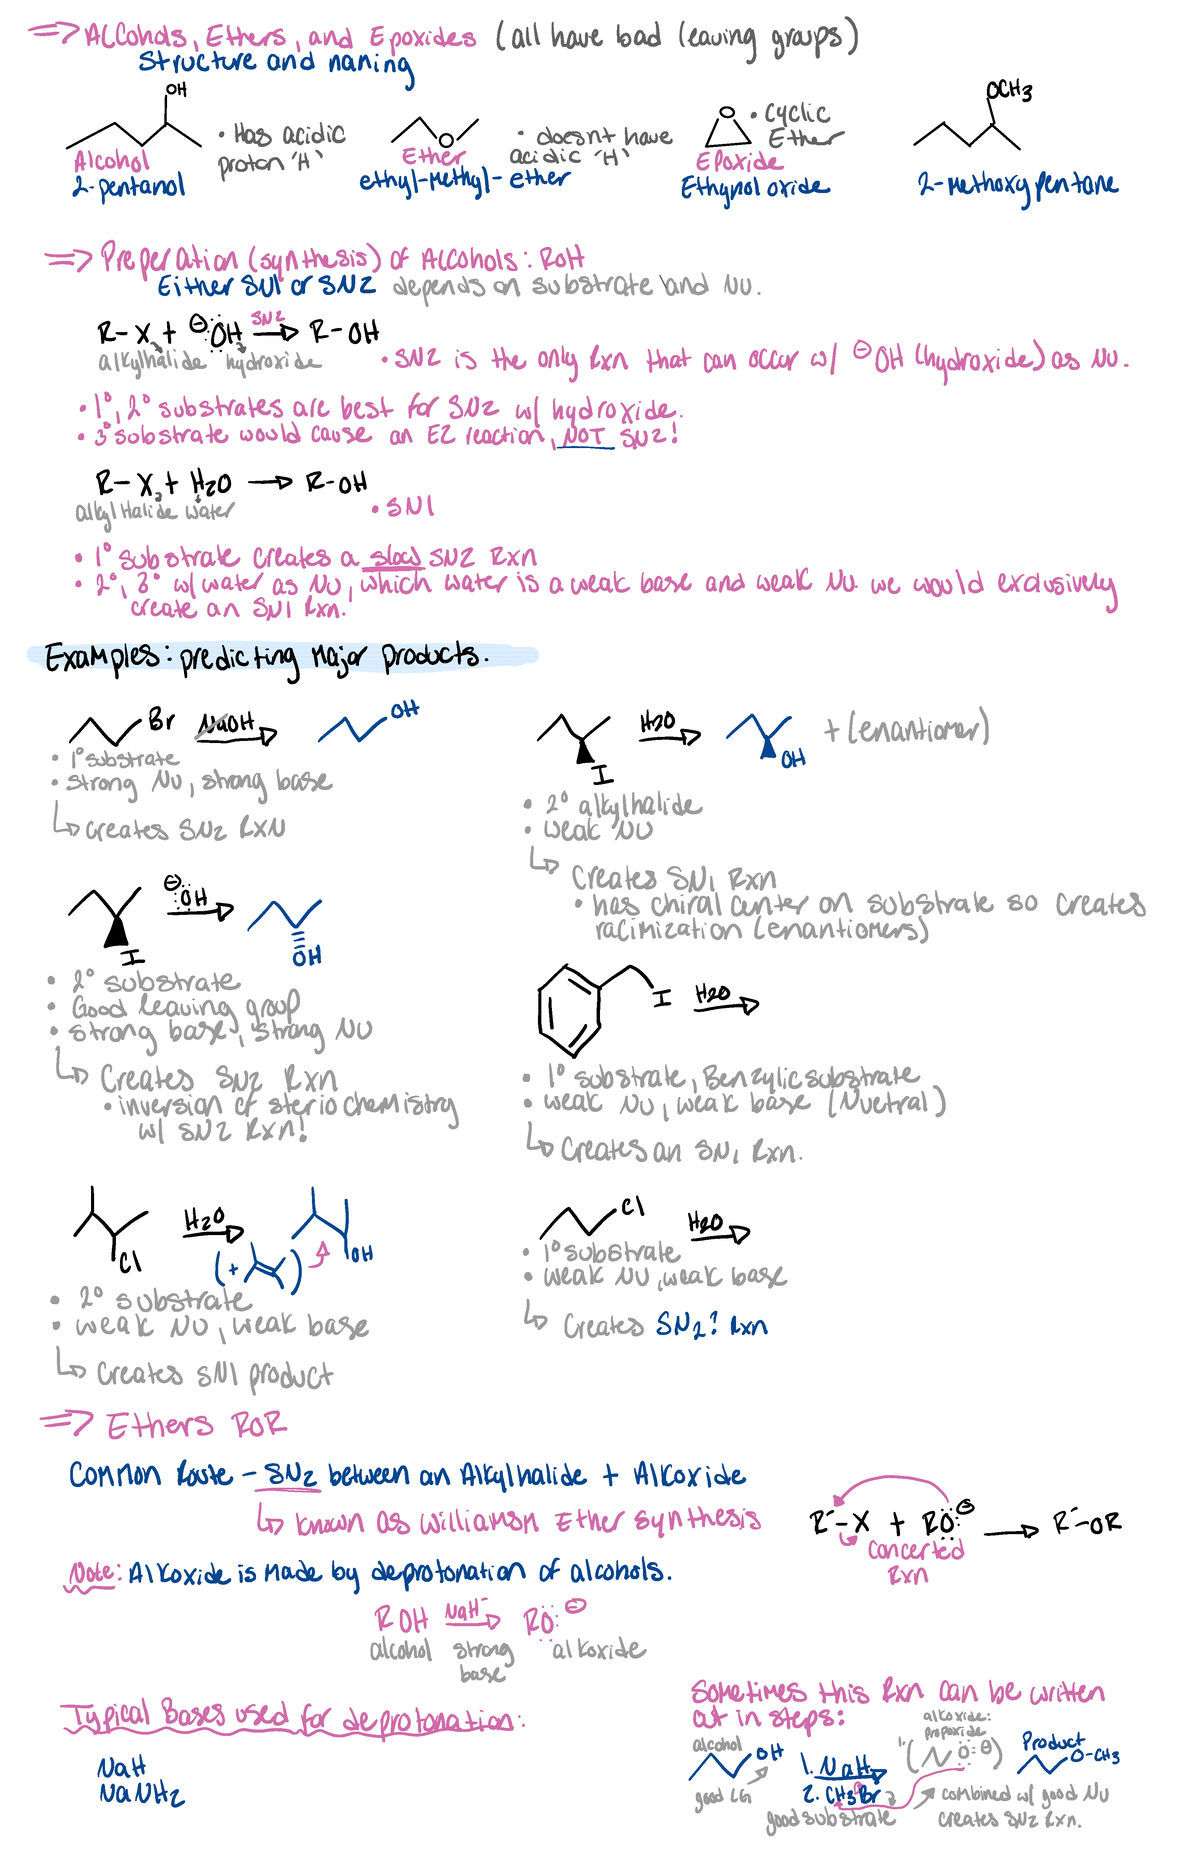 ⇒ Alcohols, Ethers, and Epoxides (all have bad leaving groups)
Structure and naming
OH
• Has acidic
proton 'H'
Alcohol
2-pentanol
O
Ether
ethyl-Methyl-ether
• doesnt have
acidic 'H'
O
• cyclic
Ether
Epoxide
Ethynol oxide
OCH3
2-Methoxy pentane
⇒ Preperation (synthesis) of Alcohols: ROH
Either SN1 or SN2 depends on substrate and NU.
R-X + ⊖:ÖH SN2 → R-OH
alkylhalide hydroxide
• SN2 is the only Rxn that can occur w/ ⊖OH (hydroxide) as NU.
• 1°, 2° substrates are best for SN2 w/ hydroxide.
• 3° substrate would cause an E2 reaction, NOT SN2!
R-X + H2O → R-OH
alkyl Halide water
• SN1
• 1° substrate creates a slow SN2 Rxn
• 2°, 3° w/ water as NU, which water is a weak base and weak NU we would exclusively
create an SN1 Rxn.
Examples: predicting Major products.
Br NaOH → OH
• 1° substrate
• strong NU, strong base
↳ creates SN2 RXN
I H2O → OH + (enantiomer)
• 2° alkylhalide
• weak NU
↳ Creates SN1 Rxn
• has chiral center on substrate so creates
racimization (enantiomers)
I ⊖:ÖH → OH
• 2° substrate
• Good leaving group
• strong base, strong NU
↳ Creates SN2 Rxn
• inversion of steriochemistry
w/ SN2 Rxn!
I H2O →
• 1° substrate, Benzylic substrate
• weak NU, weak base (Nuetral)
↳ Creates an SN1 Rxn.
Cl H2O → OH
(+ )
• 2° substrate
• weak NU, weak base
↳ Creates SN1 product
Cl H2O →
• 1° substrate
• weak NU, weak base
↳ Creates SN2? Rxn
⇒ Ethers ROR
Common Route - SN2 between an Alkylhalide + Alkoxide
↳ known as Williamson Ether Synthesis
R'-X + RÖ:⊖ → R'-OR
concerted
Rxn
Note: Alkoxide is Made by deprotonation of alcohols.
ROH NaH → RÖ:⊖
alcohol strong
base
alkoxide
Typical Bases used for deprotonation:
NaH
NaNH2
Sometimes this Rxn can be written
out in steps:
alcohol
OH
good LG
1. NaH
2. CH3Br
good substrate
alkoxide:
propoxide
1. ( Ö:⊖ )
Product
O-CH3
combined w/ good NU
creates SN2 Rxn.